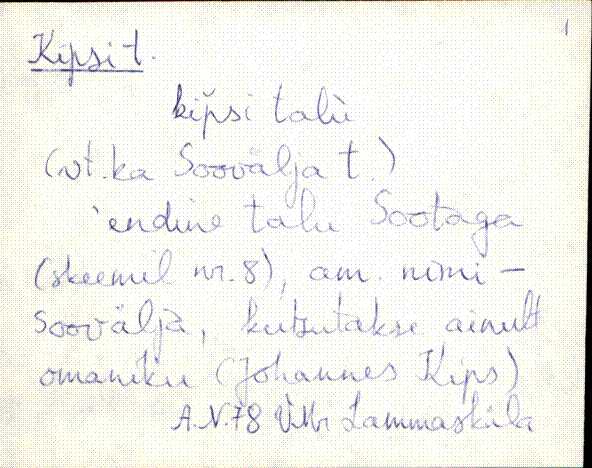 1
Kipsi t.
kip̆si talù
(vt. ka Soovälja t.)
'endine talu Sootaga
(skeemil nr. 8), am. nimi –
Soovälja, kutsutakse ainult
omaniku (Johannes Kips)
A.N. 78 VMr Lammasküla